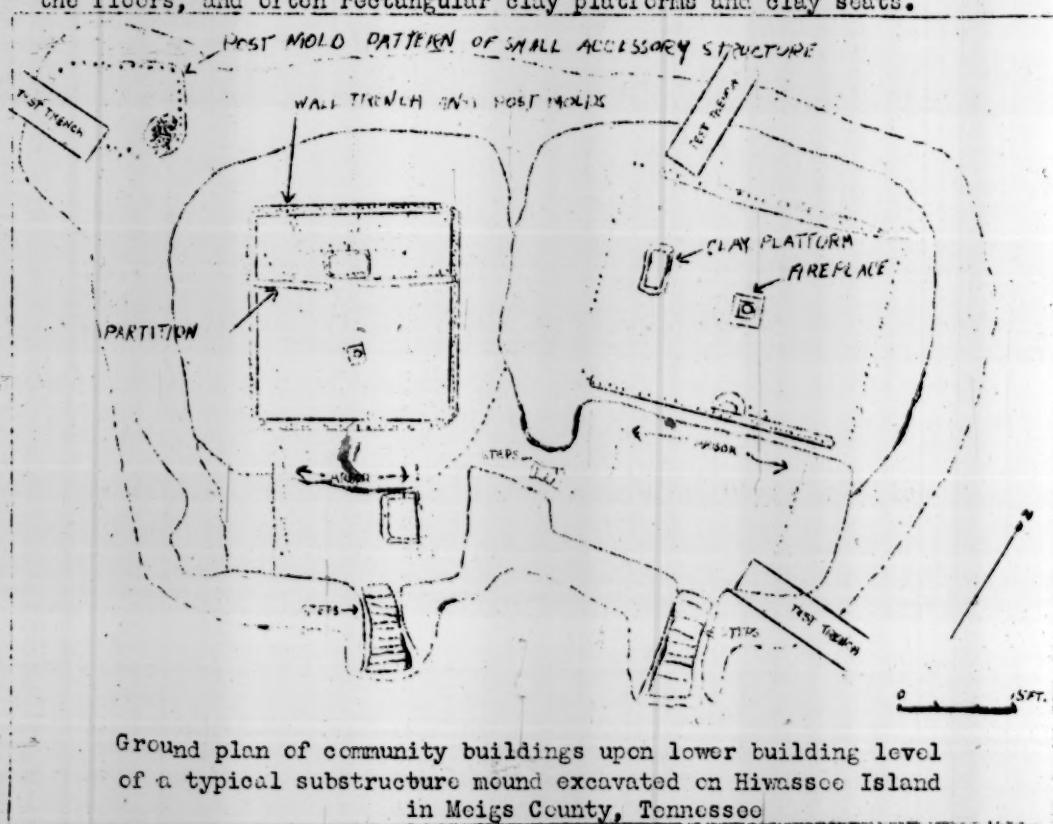 the floors, and often rectangular clay platforms and clay seats.
POST MOLD PATTERN OF SMALL ACCESSORY STRUCTURE
TEST TRENCH
WALL TRENCH AND POST MOLDS
TEST TRENCH
CLAY PLATFORM
FIREPLACE
PARTITION
ARBOR
STEPS
ARBOR
N
STEPS
STEPS
TEST TRENCH
0 15 FT.
Ground plan of community buildings upon lower building level
of a typical substructure mound excavated on Hiwassee Island
in Meigs County, Tennessee